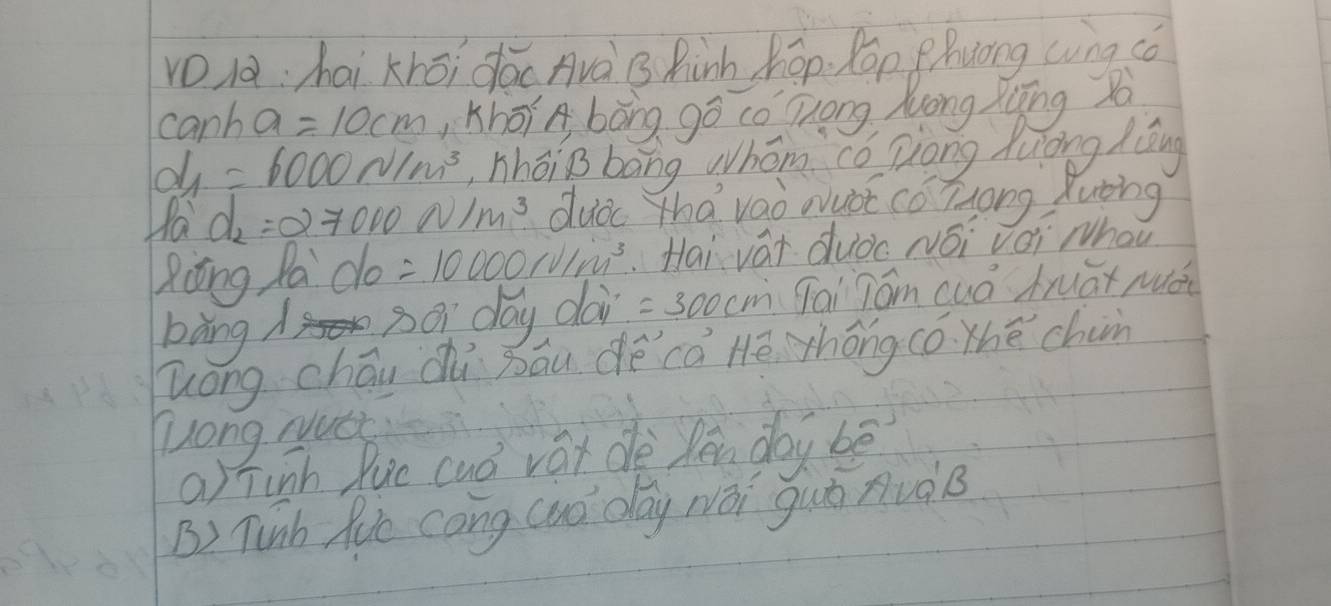 VD 12: hai khối đặc A và B hình hộp lập phương cùng có
cạnh a = 10cm, khối A bằng gỗ có trọng lượng riêng là
d₁ = 6000 N/m³, khối B bằng nhôm có trọng lượng riêng
là d₂ = 27000 N/m³ được thả vào nước có trọng lượng
riêng là do = 10000 N/m³. Hai vật được nối với nhau
bằng 1 sợi dây dài = 300cm Tại Tâm của mặt nước
Trong chậu đủ sâu để cả Hệ thống có thể chìm
trong nước
a) Tính lực của vật đè lên đáy bể
B) Tính lực căng của dây nối giữa A và B